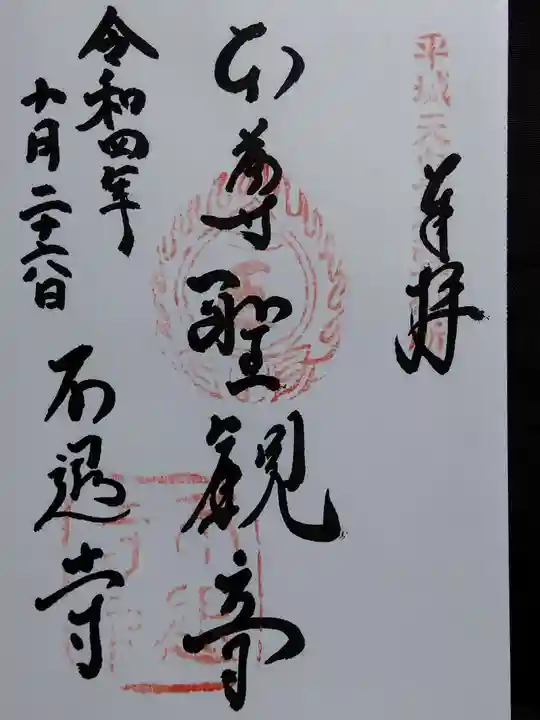 奉拝
平城天
本尊聖観音
令和四年
十月二十六日
不退寺